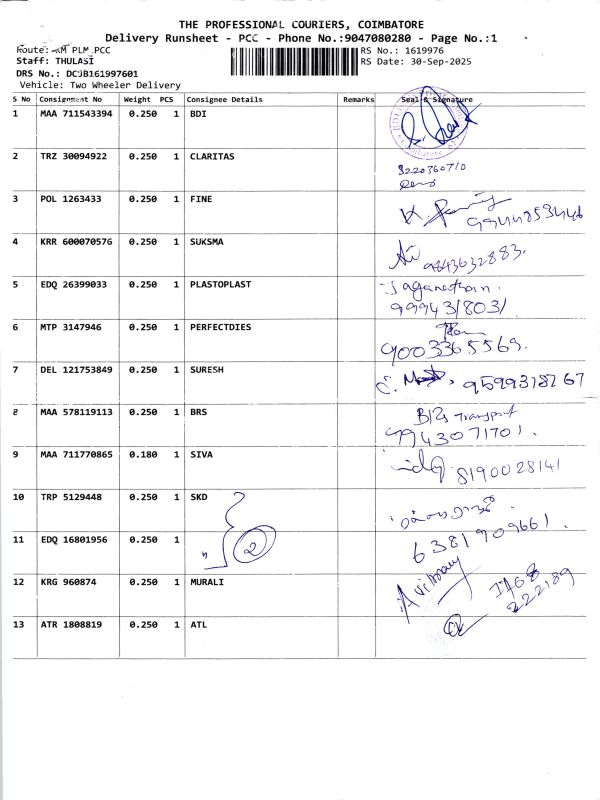 THE PROFESSIONAL COURIERS, COIMBATORE
Delivery Runsheet - PCC - Phone No.:9047080280 - Page No.:1
Route: RM PLM PCC
RS No.: 1619976
Staff: THULASI
RS Date: 30-Sep-2025
DRS No.: DCJB161997601
Vehicle: Two Wheeler Delivery
S No Consignment No Weight PCS Consignee Details Remarks Seal & Signature
1 MAA 711543394 0.250 1 BDI
2 TRZ 30094922 0.250 1 CLARITAS
8220360710
3 POL 1263433 0.250 1 FINE
9944853446
4 KRR 600070576 0.250 1 SUKSMA
9843632883.
5 EDQ 26399033 0.250 1 PLASTOPLAST
Jaganathan.
9994318031
6 MTP 3147946 0.250 1 PERFECTDIES
9003365569.
7 DEL 121753849 0.250 1 SURESH
9599318267
8 MAA 578119113 0.250 1 BRS
BRS Transport
9943071701.
9 MAA 711770865 0.180 1 SIVA
8190028141
10 TRP 5129448 0.250 1 SKD
6381909661.
11 EDQ 16801956 0.250 1 " 2
12 KRG 960874 0.250 1 MURALI
222189
13 ATR 1808819 0.250 1 ATL